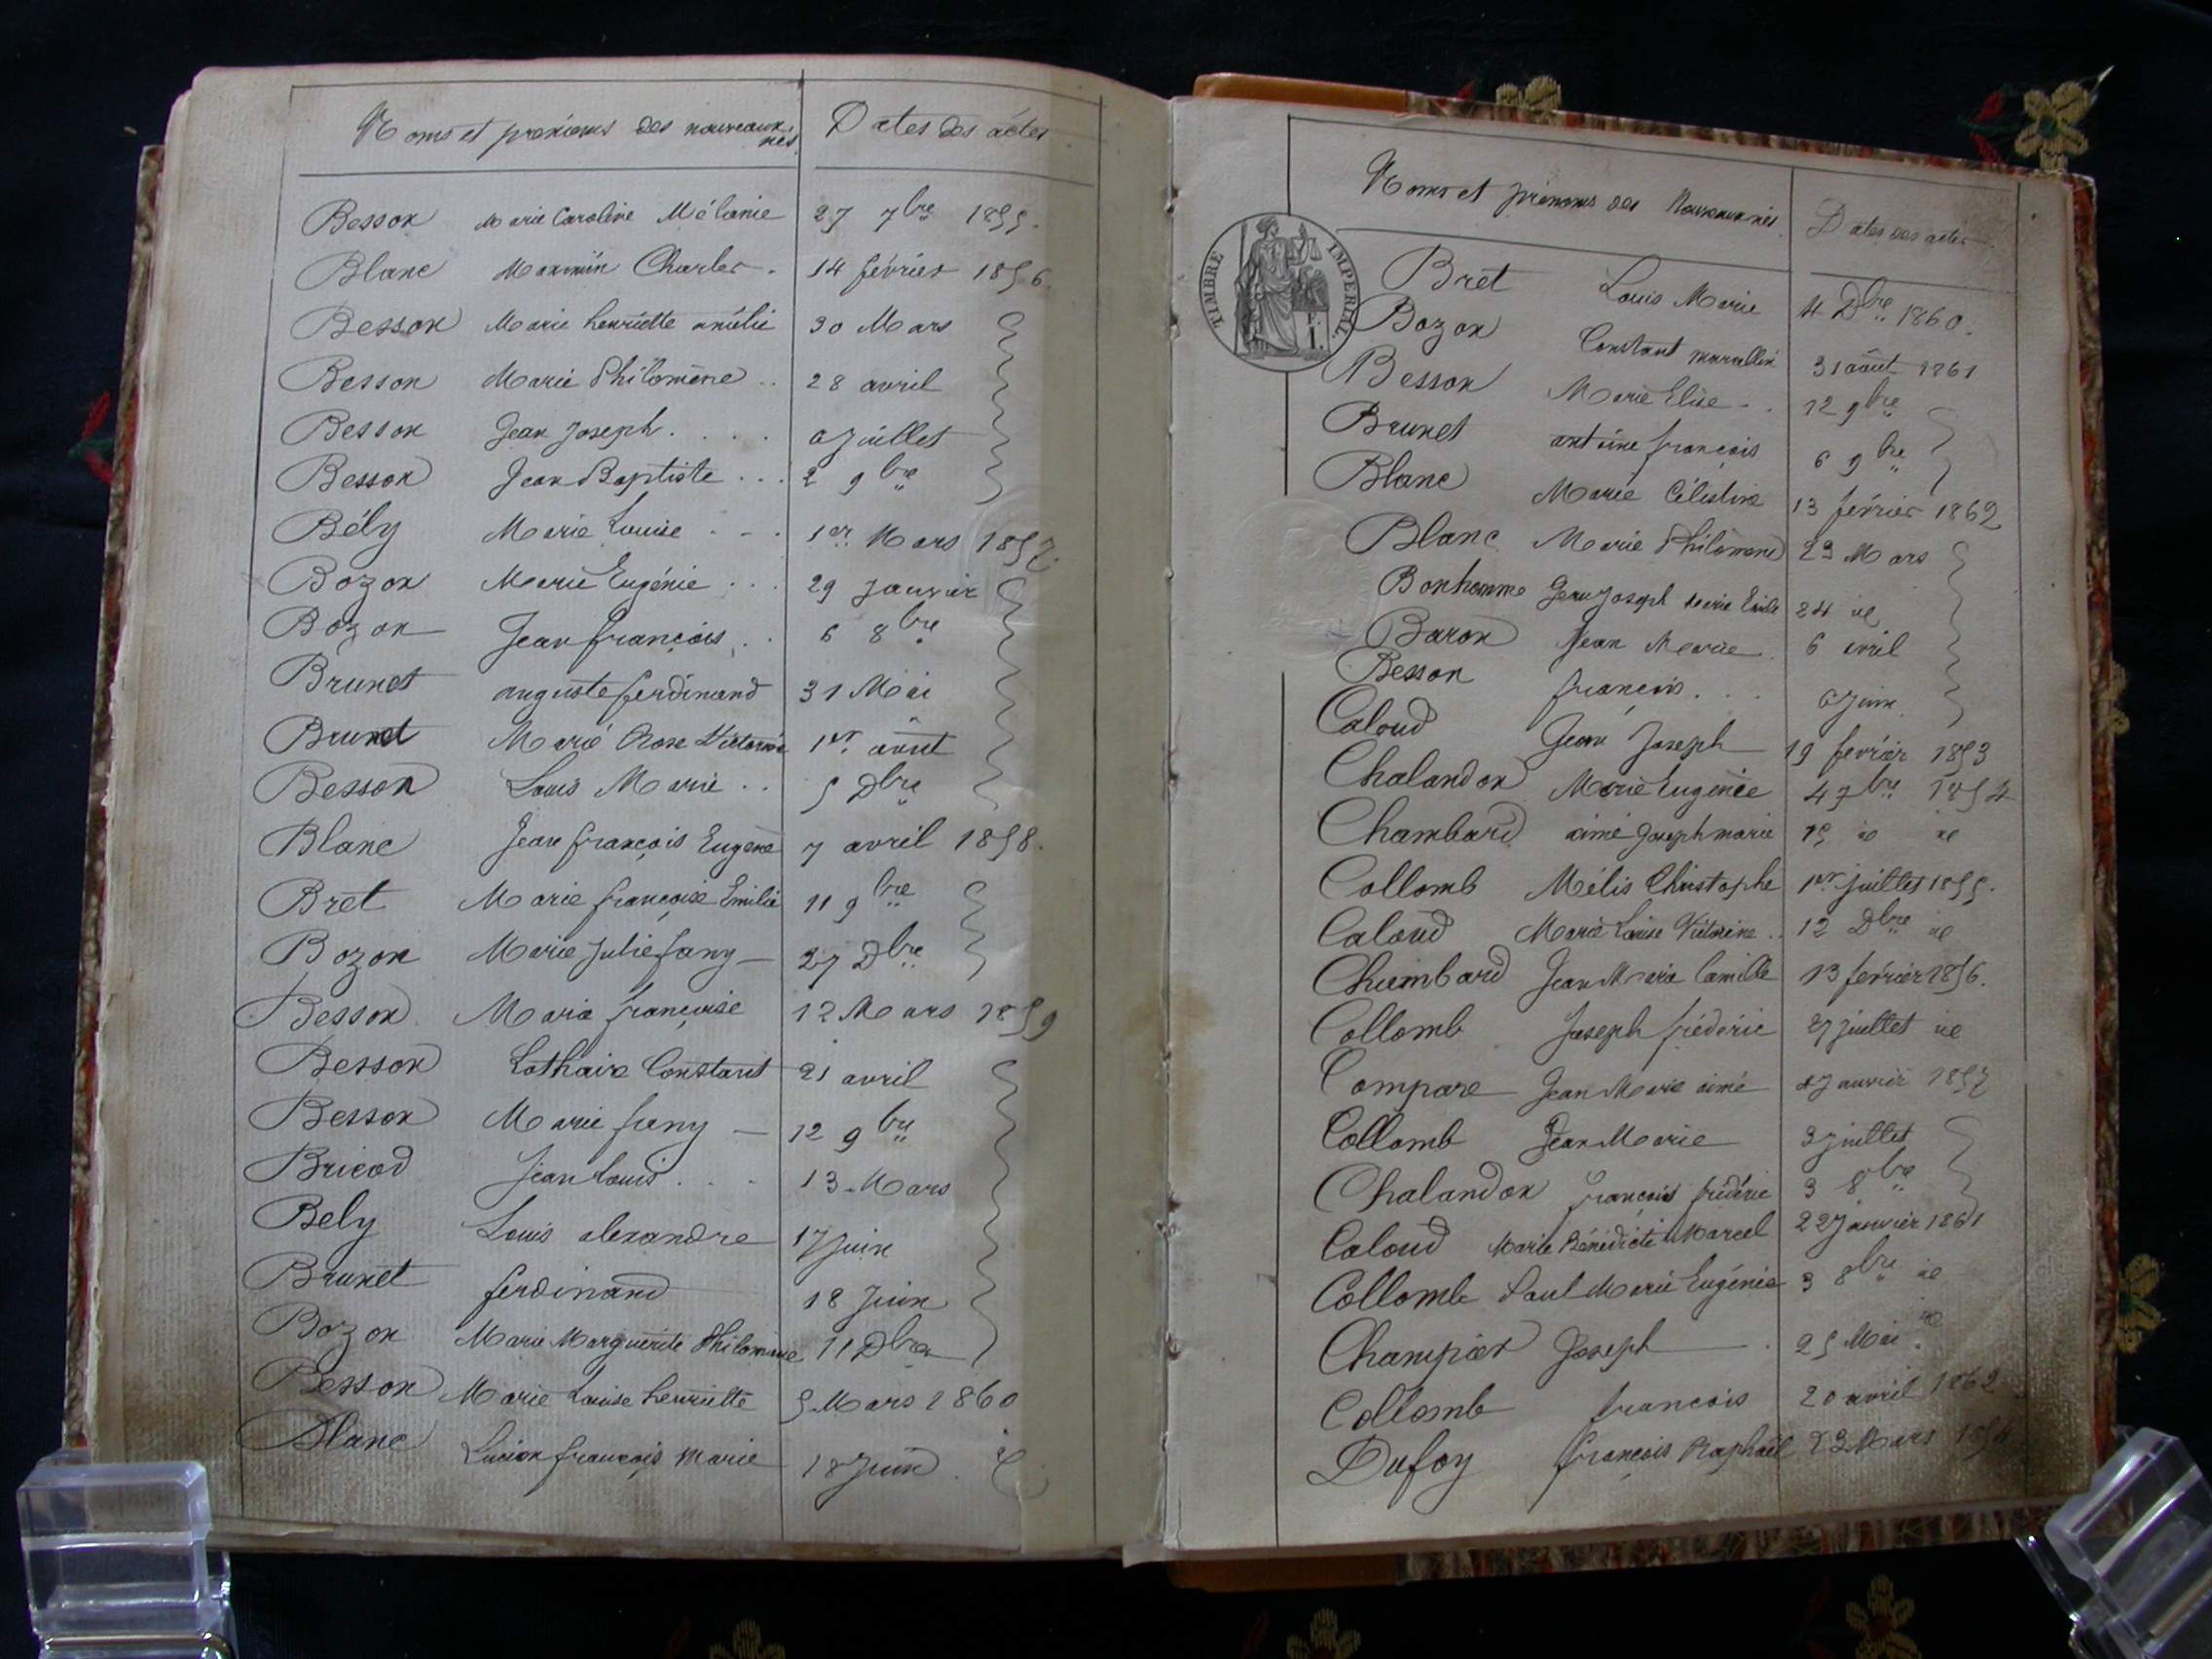 Noms et prénoms des nouveaux nés Dates des actes
Besson Marie Caroline Mélanie 27 7bre 1855.
Blanc Maximin Charles. 14 février 1856
Besson Marie henriette amélie 30 Mars
Besson Marie Philomène.. 28 avril
Besson Jean Joseph.... juillet
Besson Jean Baptiste... 2 9bre
Bély Marie Louise... 1er Mars 1857
Bozon Marie Eugénie... 29 Janvier
Bozon Jean françois.. 6 8bre
Brunet auguste ferdinand 31 Mai
Brunet Marie Rose Victorine 1er août
Besson Louis Marie.. 5 Dbre
Blanc Jean françois Eugène 7 avril 1858.
Bret Marie françoise Emilie 11 9bre
Bozon Marie Julie fany 27 Dbre
Besson Marie françoise 12 Mars 1859
Besson Lothaire Constant 21 avril
Besson Marie fany 12 9bre
Bricod Jean Louis... 13 Mars
Bely Louis alexandre 17 Juin
Brunet ferdinand 18 Juin
Bozon Marie Marguerite Philomène 11 Dbre
Besson Marie Louise henriette 5 Mars 1860
Blanc Lucien françois Marie 18 Juin
Noms et prénoms des Nouveaux nés. Dates des actes
TIMBRE IMPERIAL
Bret Louis Marie 4 Dbre 1860.
Bozon Constant marcellin 31 août 1861
Besson Marie Elise.. 12 9bre
Brunet antoine françois 6 9bre
Blanc Marie Célestine 13 février 1862
Blanc Marie Philomène 23 Mars
Bonhomme Jean Joseph Marie Emile 24 id
Baron Jean Marie 6 avril
Besson françois... 6 Juin
Caloud Jean Joseph 19 février 1853
Chalandon Marie Eugénie 4 7bre 1854
Chambard aimé Joseph marie 15 id id
Collomb Mélis Christophe 1er juillet 1855.
Caloud Marie Louise Victorine.. 12 Dbre id
Chambard Jean Marie Camille 13 février 1856.
Collomb Joseph frédéric 27 juillet id
Compare Jean Marie aimé Janvier 1857
Collomb Jean Marie 3 juillet
Chalandon françois frédéric 3 8bre
Caloud Marie Bénédicte Marcel 22 Janvier 1861
Collomb Paul Marie Eugénie 3 8bre id
Champier Joseph 25 Mai id
Collomb francois 20 avril 1862
Dufoy françois Raphaël 23 Mars 1854